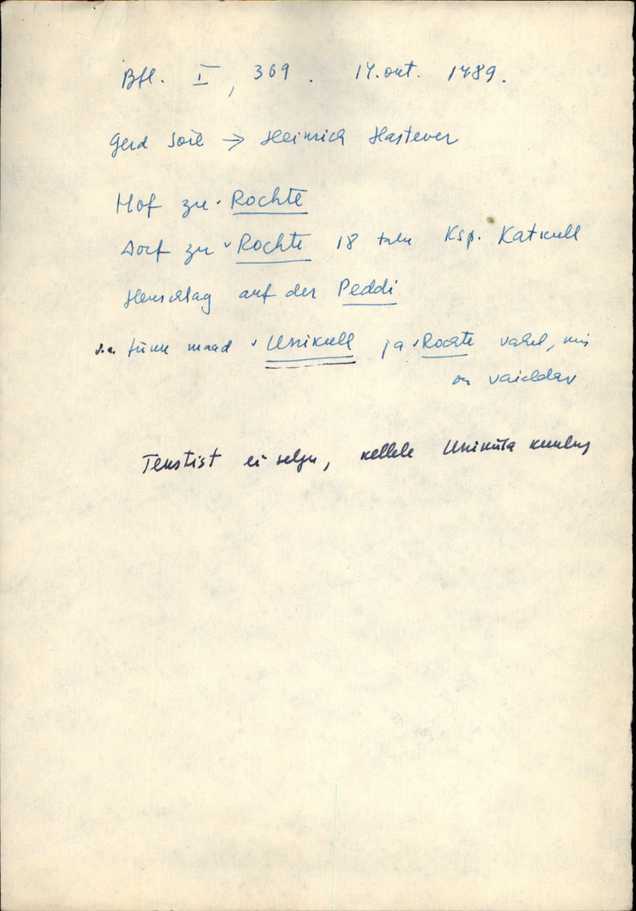 Bfl. I, 369. 14. okt. 1489.
Gerd Soie → Heinrich Hastever
Hof zu Rochte
Dorf zu Rochte 18 talu Ksp. Katkull
Heuschlag auf der Peddi
tükk maad Unikull ja Rochte vahel, mis
on vaieldav
Tekstist ei selgu, kellele Uniküla kuulus